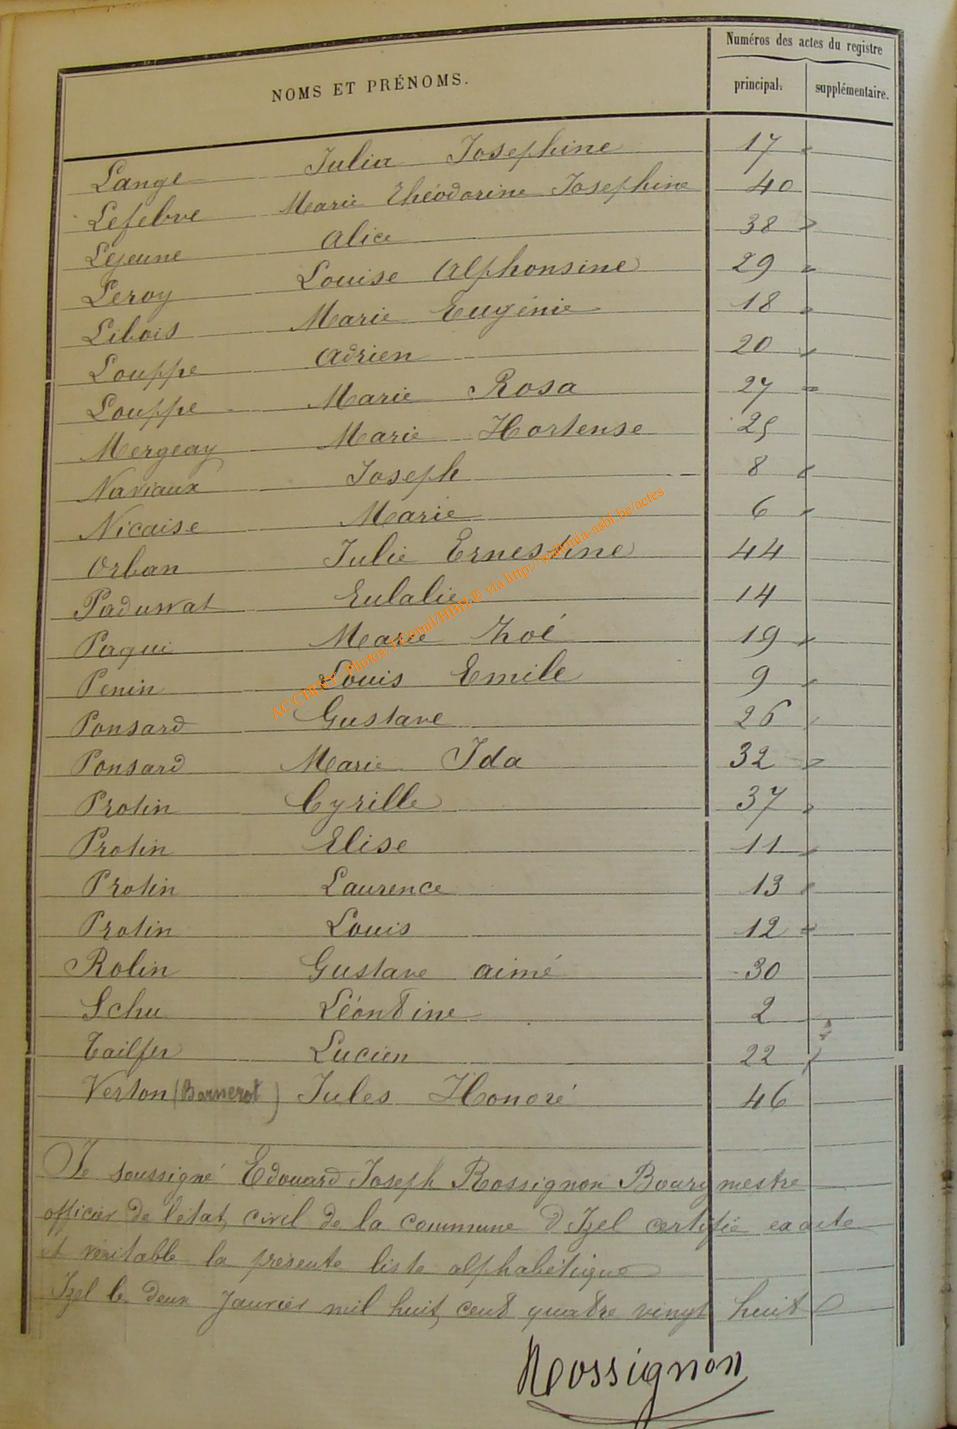 NOMS ET PRÉNOMS.
Numéros des actes du registre
principal.
supplémentaire.
Lange Julia Josephine 17
Lefebvre Marie Théodorine Josephine 40
Lejeune Alice 38
Leroy Louise Alphonsine 29
Libois Marie Eugénie 18
Louppe Adrien 20
Louppe Marie Rosa 27
Mergeay Marie Hortense 25
Naviaux Joseph 8
Nicaise Marie 6
Orban Julie Ernestine 44
Eulalie 14
Marie Zoé 19
Penin Louis Emile 9
Ponsard Gustave 26
Ponsard Marie Ida 32
Protin Cyrille 37
Protin Elise 11
Protin Laurence 13
Protin Louis 12
Rolin Gustave aimé 30
Schu Léontine 2
Tailfer Lucien 22
Verton (Barnerot) Jules Honoré 46
Je soussigné Edouard Joseph Rossignon Bourgmestre
officier de l'état civil de la commune d Izel certifie exacte
et véritable la présente liste alphabétique
Izel le deux Janvier mil huit cent quatre vingt huit
Rossignon